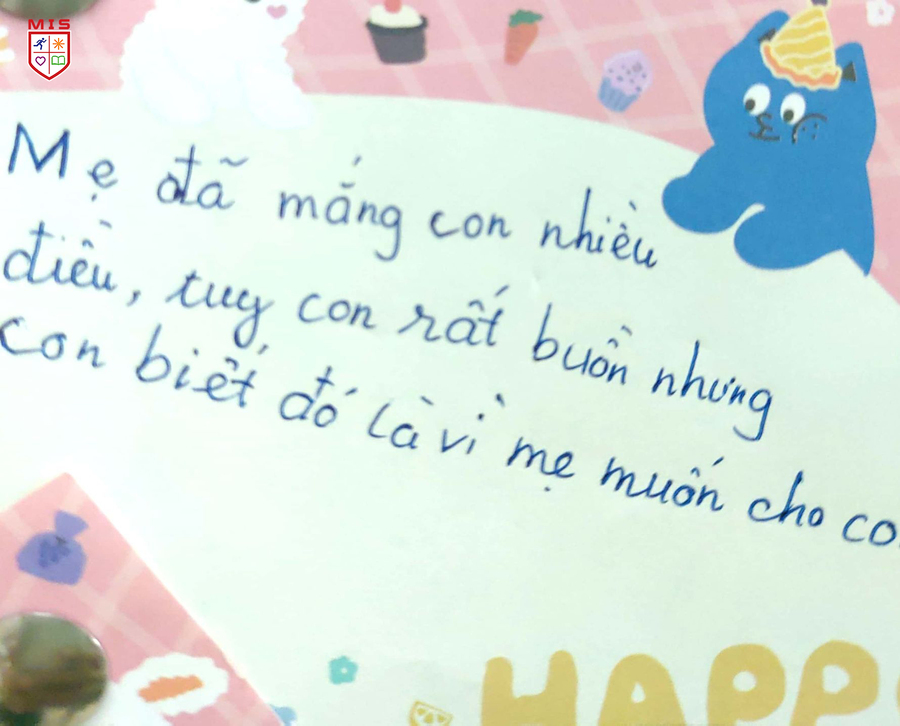 MIS
Mẹ đã mắng con nhiều
điều, tuy con rất buồn nhưng
con biết đó là vì mẹ muốn cho co
HAPP